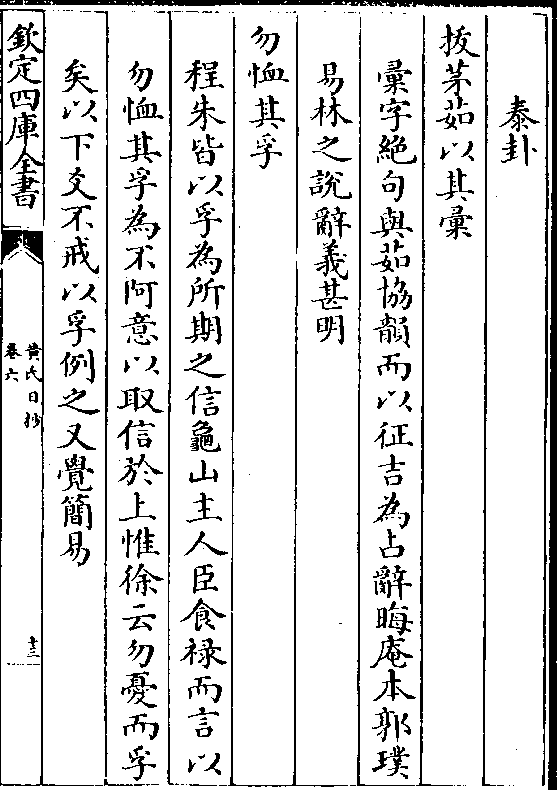 泰卦
拔茅茹以其彙
彙字絶句與茹協韻而以征吉為占辭晦庵本郭璞
易林之說辭義甚明
勿恤其孚
程朱皆以孚為所期之信龜山主人臣食禄而言以
勿恤其孚為不阿意以取信於上惟徐云勿憂而孚
矣以下爻不戒以孚例之又覺簡易
欽定四庫全書
黄氏日抄
卷六
十三